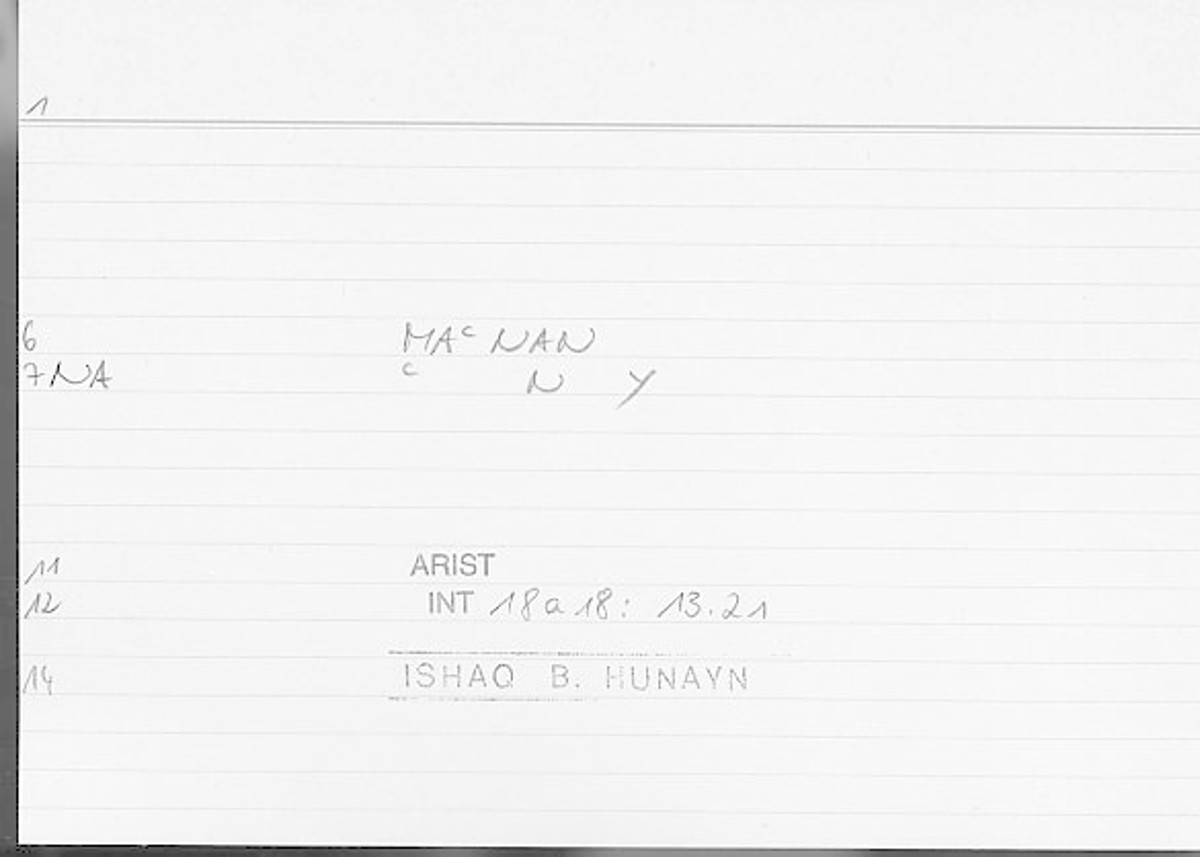 1
6 MAᶜNAN
7 NA ᶜ N Y
11 ARIST
12 INT 18a18: 13.21
14 ISHAQ B. HUNAYN